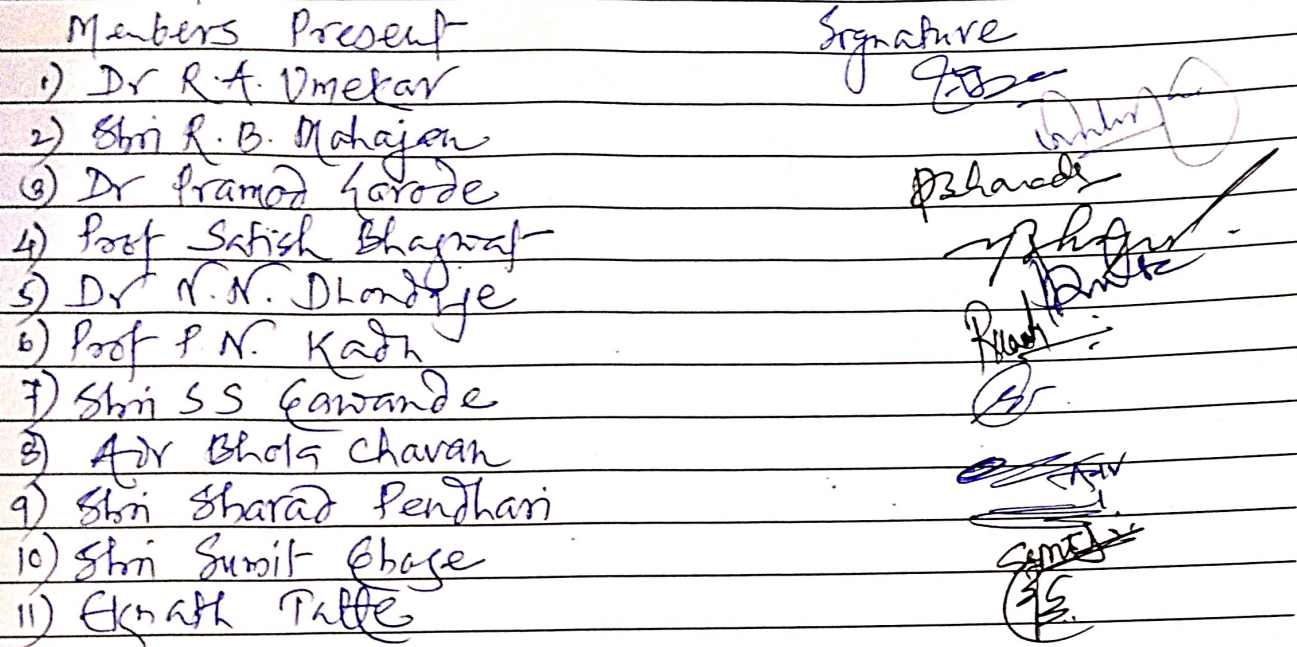 Members Present Signature
1) Dr R.A. Umekar
2) Shri R.B. Mahajan
3) Dr Pramod Garode
4) Prof Satish Bhagwat
5) Dr N.N. Dhondge
6) Prof P.N. Kadu
7) Shri S S Gawande
8) Adv Bhola Chavan
9) Shri Sharad Pendhari
10) Shri Sumit Ghage
11) Eknath Tatte